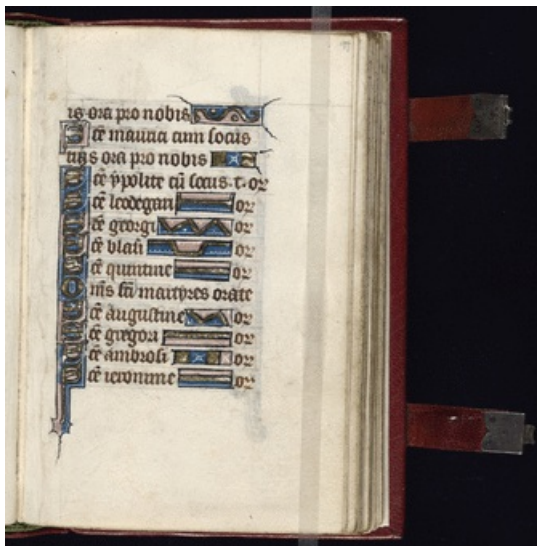 is ora pro nobis
S cē maurici cum socus
tuis ora pro nobis
S cē ypolite cū socus t. or
S cē leodegari or
S cē georgi or
S cē blasi or
S cē quintine or
O ms scī martyres orate
S cē augustine or
S cē gregori or
S cē ambrosi or
S cē ieronime or